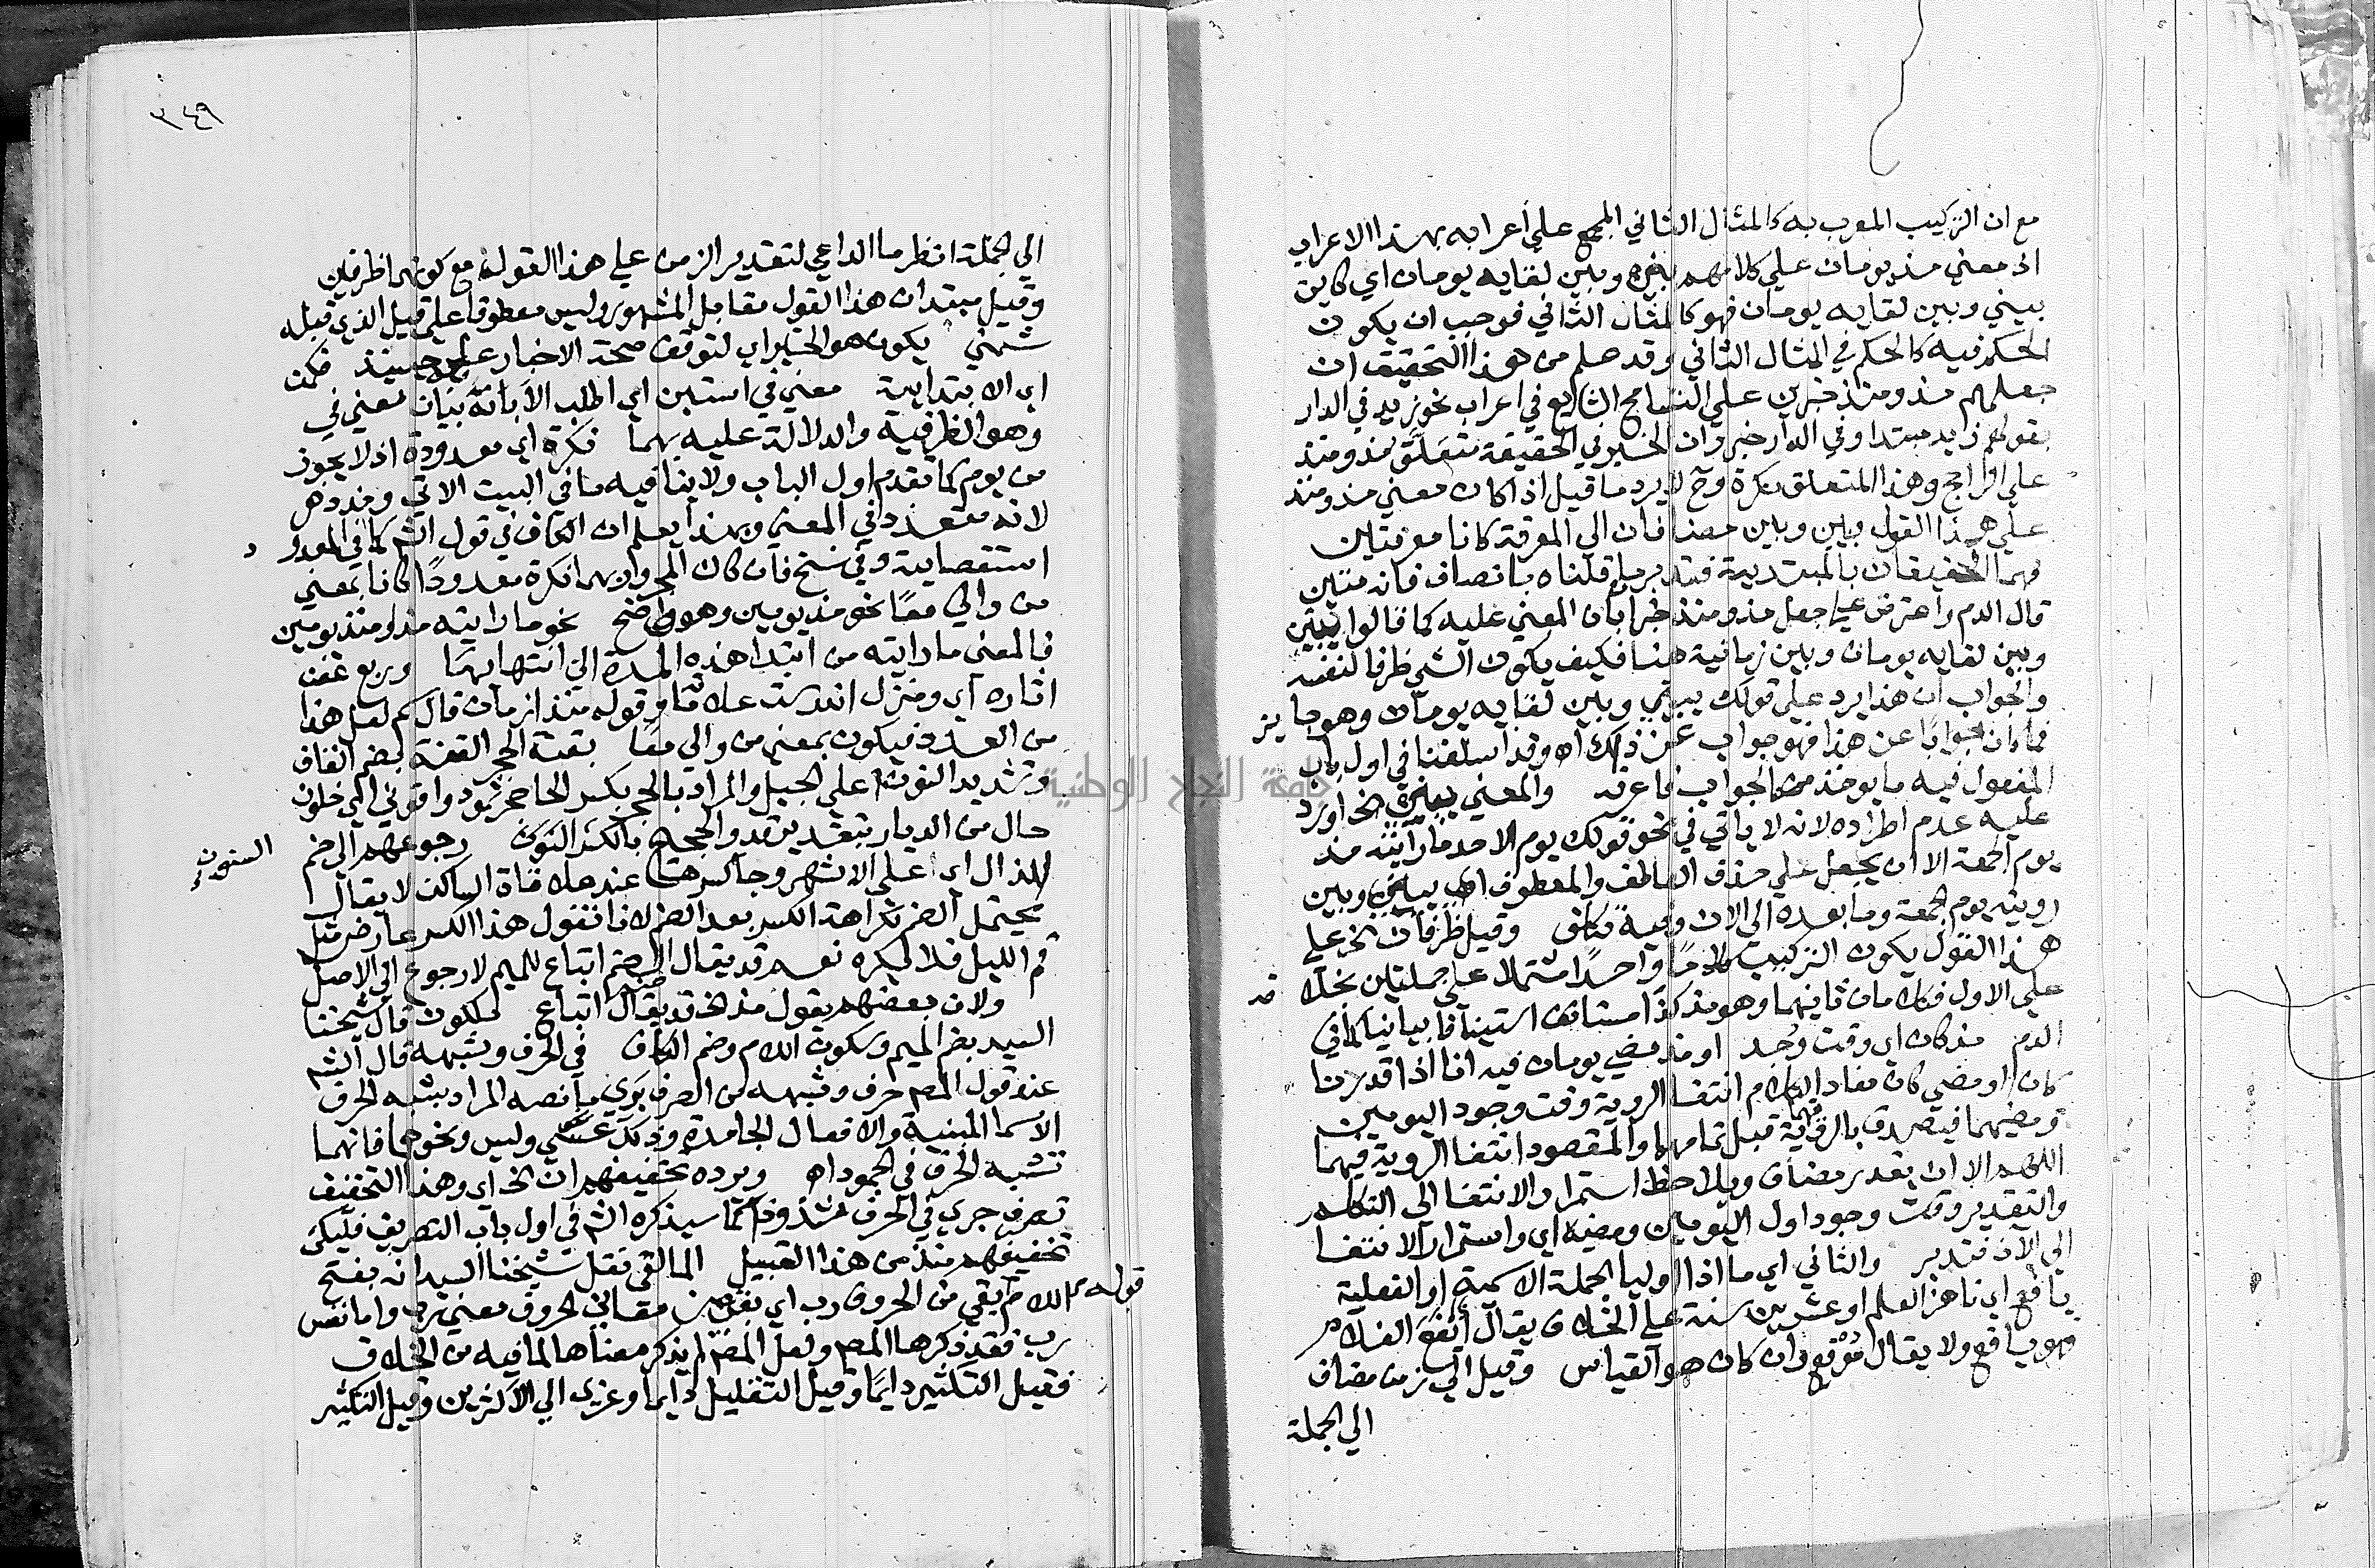 مع ان التركيب المعرب به كالمثال الثاني المجمع على أعرابه بهذا الاعراب
اذ معني مذ يومان علي كلامهم بيني وبين لقايه يومان اي كاين
بيني وبين لقايه يومان فهو كالمثال الثاني فوجب ان يكون
الحكم فيه كالحكم في المثال الثاني وقد علم من هذا التحقيق ان
جعلهم مذ ومنذ خبرين علي التسامح الشايع في اعراب نحو زيد في الدار
بقولهم زيد مبتدا وفي الدار خبر وان الخبر في الحقيقة متعلق مذ ومنذ
علي الراجح وهذا المتعلق نكرة وح لا يرد ما قيل اذا كان معني مذ ومنذ
علي هذا القول وبين وبين مضافان الي المعرفة كانا معرفتين
فهما الحقيقان بالمبتدئية فتدبر ما قلناه بانصاف فانه متين
قال الدم واعترض علي جعل مذ ومنذ خبرا بان المعني عليه كما قالوا بيني
وبين لقايه يومان وبين زمانية هنا فكيف يكون الشي ظرفا لنفسه
والجواب ان هذا يرد علي قولك بيني وبين لقايه يومان وهو جايز
فما كان جوابا عن هذا فهو جواب عن ذلك اه وقد اسلفنا في اول باب
المفعول فيه ما يوخذ منه الجواب فاعرفه والمعني بيني الخ اورد
عليه عدم اطراده لانه لا ياتي في نحو قولك يوم الاحد ما رايته مذ
يوم الجمعة الا ان يجعل علي حذف العاطف والمعطوف اي بيني وبين
رويته يوم الجمعة وما بعده الي الان وفيه تكلف وقيل ظرفان الخ علي
هذا القول يكون التركيب كلاما واحدا مشتملا علي جملتين بخلافه
علي الاول فكلامان ثانيهما وهو مذ كذا مستانف استينافا بيانيا كما في
الدم مذ كان اي وقت وجد او مذ مضي يومان فيه انا اذا قدرنا
كان او مضي كان مفاد الكلام انتفا الروية وقت وجود اليومين
ومضيهما فيصدق بالرؤية قبل تمامهما والمقصود انتفا الروية فيهما
اللهم الا ان يقدر مضاف ويلاحظ استمرار الانتفا الي التكلم
والتقدير وقت وجود اول اليومين ومضيه اي واستمرار الانتفا
الي الان فتدبر والثاني اي ما اذا اوليا الجملة الاسمية او الفعلية
يافع اي ناهز الحلم او عشرين سنة علي الخلاف يقال أيفع الغلام
فهو يافع ولا يقال موفع وان كان هو القياس وقيل الي زمن مضاف
الي الجملة
٣٤٩
الي الجملة انظر ما الداعي لتقدير الزمن علي هذا القول مع كونهما ظرفين
وقيل مبتدان هذا القول مقابل المشهور وليس معطوفا علي قيل الذي قبله
شمني يكون هو الخبر اي لتوقف صحة الاخبار عليه حينئذ فمن
اي الابتدايية معني في استبن اي اطلب الابانة بيان معني في
وهو الظرفية والدلالة عليه بهما نكرة اي معدودة اذ لا يجوز
من يوم كما تقدم اول الباب ولا ينافيه ما في البيت الاتي ومذ دهر
لانه متعدد في المعني وبهذا يعلم ان الكاف في قول الش كما في المعدود
استقصايية وفي نسخ فان كان المجرور بهما نكرة معدودا كانا بمعني
من والي معًا نحو مذ يومين وهو واضح نحو ما رايته مذ او منذ يومين
فالمعني ما رايته من ابتدا هذه المدة الي انتهايها وربع عفت
اثاره اي ومنزل اندرست علاماته وقوله منذ ازمان قال سم لعل هذا
من العدد فيكون بمعني من والي معًا بقنة الحجر القنة بضم القاف
وتشديد النون اعلي الجبل والمراد بالحجر بكسر الحا حجر ثمود واقوين اي خلون
حال من الديار بتقدير قد والحجج بالكسر السنون رجوعهم الي ضم
الذال اي علي الاشهر وجا كسرها عند ملاقاة الساكن لا يقال
يحتمل الضم كراهة الكسر بعد الضم لانا نقول هذا الكسر عارض مثل
قم الليل فلا يكره نعم قد يقال الضم اتباع للميم لا رجوع الي الاصل
ولان بعضهم يقول مذ الخ قد يقال ضم اتباع ملكون قال شيخنا
السيد بضم الميم وسكون اللام وضم الكاف في الحرف وشبهه قال الش
عند قول المص حرف وشبهه من الصرف بري ما نصه المراد بشبه الحرف
الاسما المبنية والافعال الجامدة وذلك عسي وليس ونحوهما فانهما
تشبه الحرف في الجمود اه ويرده تخفيفهم ان الخ اي وهذا التخفيف
تصرف جري في الحرف شذوذا كما سيذكره الش في اول باب التصريف فليكن
تخفيفهم منذ من هذا القبيل المالقي نقل شيخنا السيد انه بفتح
قوله اللام بقي من الحروف رب اي بقي من معاني الحروف معني رب واما نفس
رب فقد ذكرها المص ولعل المص لم يذكر معناها لما فيه من الخلاف
فقيل التكثير دايما وقيل التقليل دايما وعزي الي الاكثرين وقيل التكثير
جامعة النجاح الوطنية